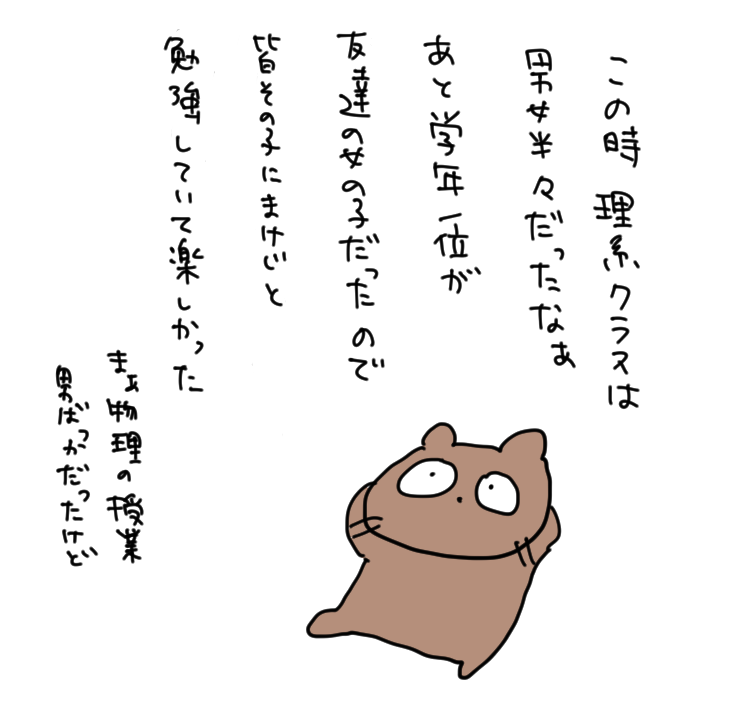 この時 理系クラスは
男女半々だったなぁ
あと学年一位が
友達の女の子だったので
皆その子にまけじと
勉強していて楽しかった
まぁ物理の授業
男ばっかだったけど